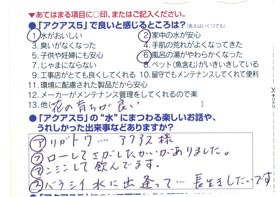 ▼あてはまる項目に○印、またはご記入ください。
●「アクアス5」で良いと感じるところは？(答えはいくつでも)
1.水がおいしい 2.家中の水が安心
3.臭いがなくなった 4.手肌の荒れがよくなってきた
5.子供や妊婦にも安心 6.風呂の湯がやわらかくからだが温まる
7.じゃまにならない 8.ペット(魚含む)がいきいきしている
9.工事店がとても良くしてくれる 10.留守でもメンテナンスしてくれて便利
11.環境に配慮された製品だから安心
12.メーカーがメンテナンス管理をしてくれるので楽
13.他(花の育ちが良い
●「アクアス5」の"水"にまつわる楽しいお話や、
うれしかった出来事などありますか？
アリガトウ… アクアス様
ローしてさがしたかいがありました。
ンシンして飲んでます。
バラシイ水に出逢って… 長生きしたいです